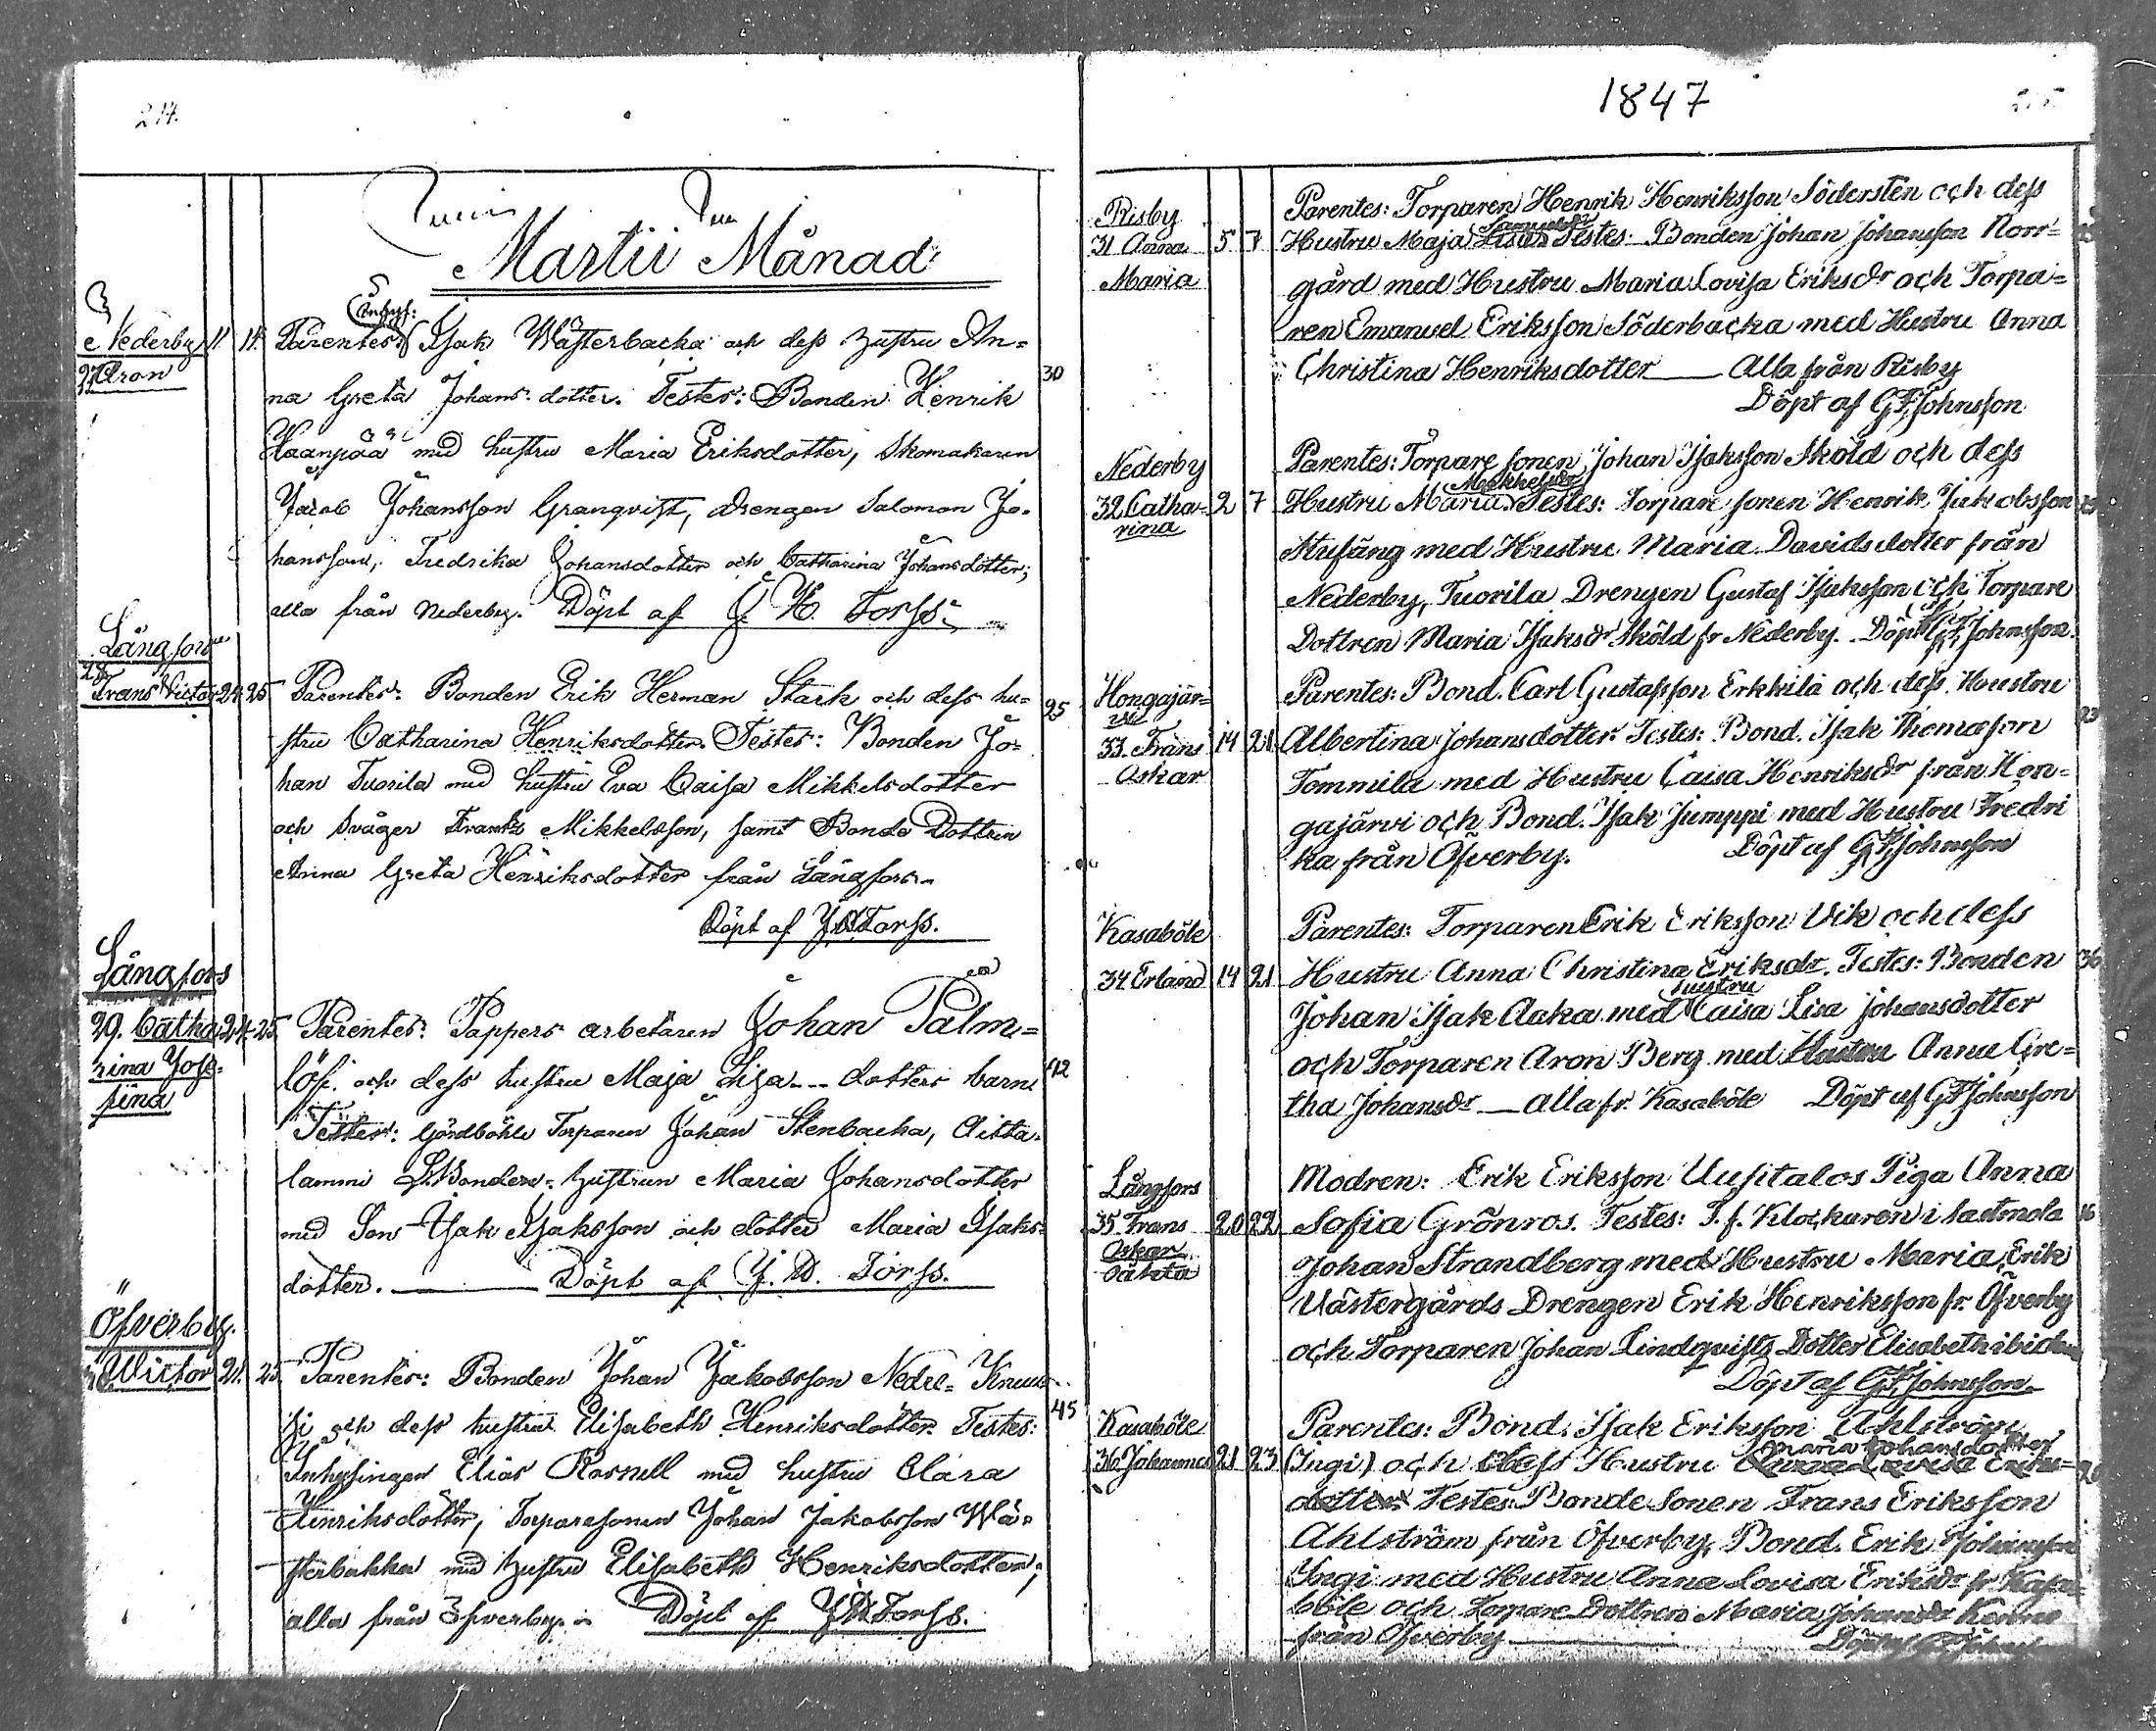 214.
Martii Månad
Nederby 11. 14. Parentes: Inhys: Isak Wästerbacka och dess hustru An=
27 Aron
na Greta Johans dotter. Testes: Bonden Henrik
30
Haanpää med hustru Maria Eriksdotter, Skomakaren
Jacob Johansson Granqvist, drengen Salomon Jo-
hansson, Fredrika Johansdotter och Catharina Johansdotter;
alla från Nederby. Döpt af
Långfors
28 Frans Victor 24 25 Parentes: Bonden Erik Herman Stark och dess hu-
25
stru Catharina Henriksdotter. Testes: Bonden Jo-
han Tuorila med hustru Eva Caisa Mikkelsdotter
och Svåger Frantz Mikkelsson, samt Bonde Dottren
Anna Greta Henriksdotter från Långfors.
Döpt af
Långfors
29. Catha 24 25 Parentes: Pappers arbetaren Johan Palm=
rina Jose-
löf. och dess hustru Maja Lisa --- dotters barn
42
fina
Testes: Gårdböhle Torparen Johan Stenbacka, Aitta-
lammi Bonden= hustrun Maria Johansdotter
med Son Isak Isaksson och dotter Maria Isaks-
dotter. Döpt af
Öfverby.
Victor 21. 25 Parentes: Bonden Johan Jakobsson Nedre=
och dess hustru Elisabeth Henriksdotter. Testes:
45
Inhysingen Elias Rosnell med hustru Clara
Henriksdotter, Torparesonen Johan Jakobsson Wä-
sterbakka med hustru Elisabeth Henriksdotter;
alla från Öfverby. Döpt af
1847
215
Risby
Parentes: Torparen Henrik Henriksson Södersten och dess
31 Anna 5 7 Hustru Maja Lisa Samuelsdr Testes: Bonden Johan Johansson Norr=
Maria
gård med Hustru Maria Lovisa Eriksdr och Torpa=
ren Emanuel Eriksson Söderbacka med Hustru Anna
Christina Henriksdotter — Alla från Risby
Döpt af G.F. Johnsson
Nederby
Parentes: Torpare sonen Johan Isaksson Sköld och dess
32 Catha= 2 7 Hustru Maria Testes: Torpare sonen Henrik Jakobsson
rina
med Hustru Maria Davidsdotter från
Nederby, Tuorila Drengen Gustaf Isaksson och Torpare
Dottren Maria Isaksdr Sköld fr Nederby. Döpt af G.F. Johnsson.
Hongajär=
Parentes: Bond. Carl Gustafsson Erkkilä och dess Hustru
vi
33. Frans 14 21 Albertina Johansdotter. Testes: Bond. Isak Thomasson
23
Oskar
Tommila med Hustru Caisa Henriksdr från Hon=
gajärvi och Bond. Isak Jumppi med Hustru Fredri
ka från Öfverby. Döpt af G.F. Johnsson
Kasaböle
Parentes: Torparen Erik Eriksson Vik och dess
34 Erland 14 21 Hustru Anna Christina Eriksdr. Testes: Bonden
36
Johan Isak Aaka med hustru Caisa Lisa Johansdotter
och Torparen Aron Berg med Hustru Anna Gre=
tha Johansdr — alla fr. Kasaböle Döpt af G.F. Johnsson
Långfors
Modren: Erik Eriksson Uusitalos Piga Anna
35 Frans 20 22 Sofia Grönros. Testes: T. f. Klockaren i Sastmola
16
Oskar
Johan Strandberg med Hustru Maria, Erik
oäkta
Västergårds Drengen Erik Henriksson fr. Öfverby
och Torparen Johan Lindqvists Dotter Elisabeth ibidem
Döpt af G.F. Johnsson.
Kasaböle
Parentes: Bond. Isak Eriksson Ahlström
36 Johannes 21 23 (Ingi) och dess Hustru Maria Johansdotter
dotter Testes: Bonde Sonen Frans Eriksson
Ahlström från Öfverby, Bond. Erik Johansson
Yngi med Hustru Anna Lovisa Eriksdr fr Kasa=
böle och Torpare Dottren Maria Johansdr
från Öfverby Döpt af